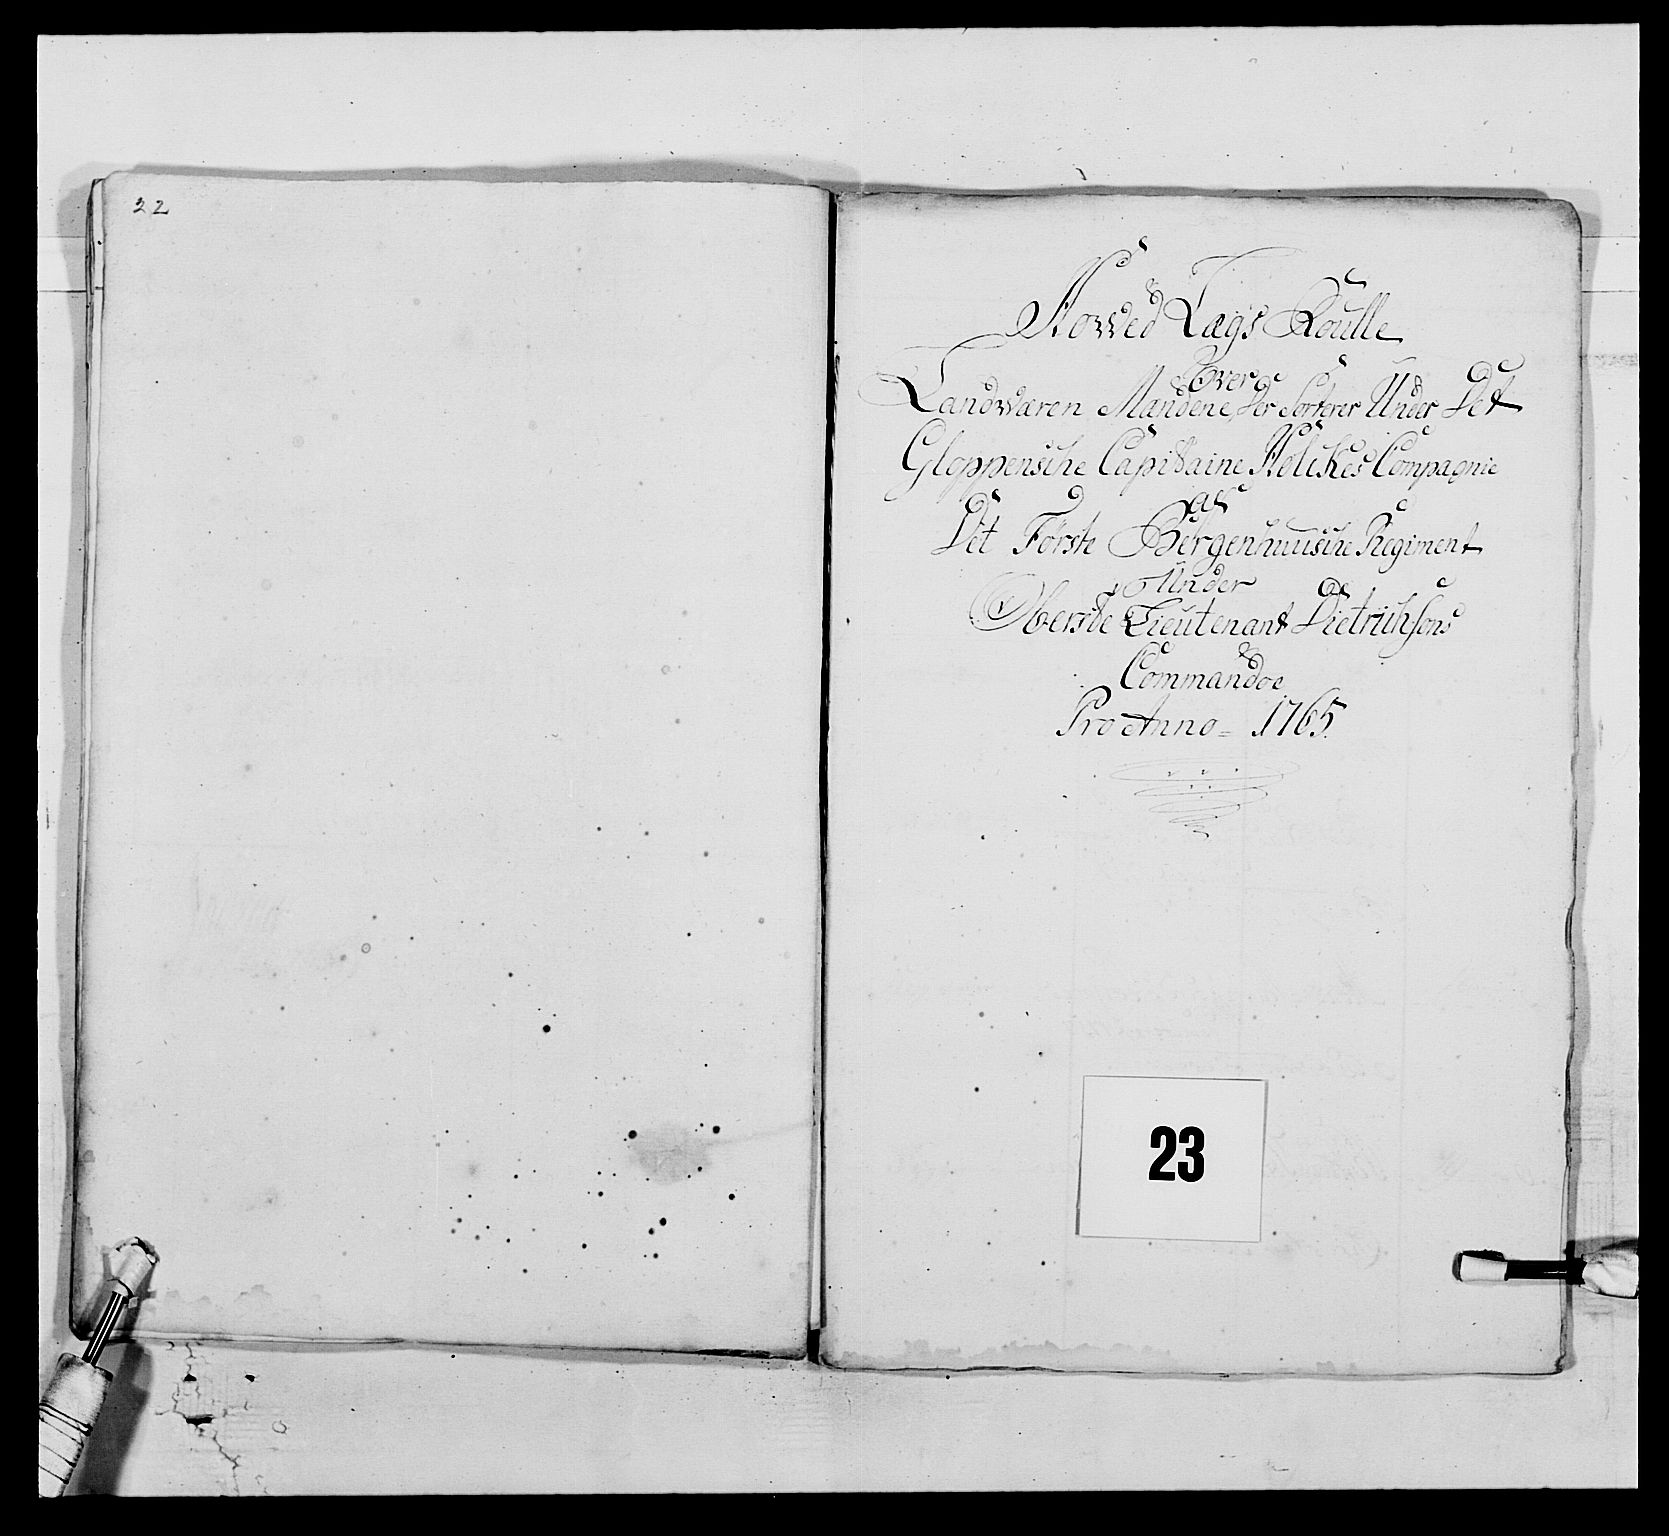 22
Hovved Lægs Roulle
Over
Landværen Mandene, der Sorterer Under Det
Gloppensche Capitaine Holckes Compagnie
af
Det Første Bergenhuusche Regiment
Under
Oberste Lieutenant Dietrichsons
Commandoe
Pro Anno = 1765.
23